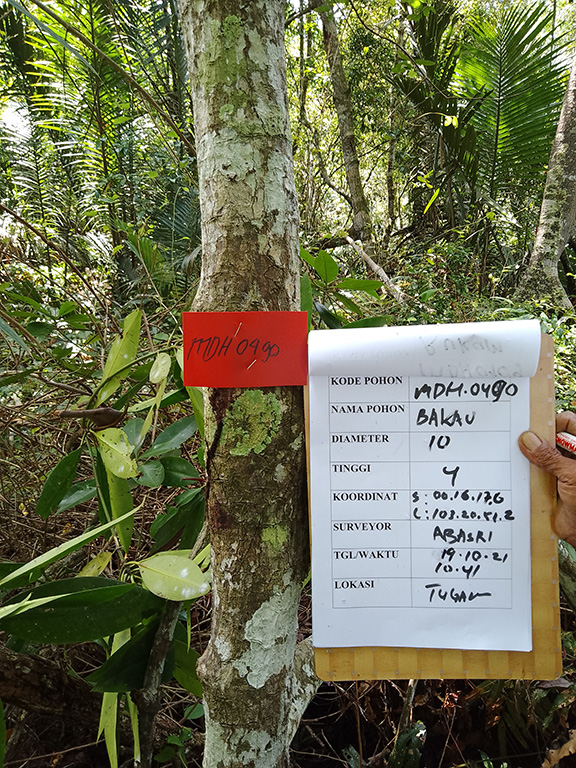 MDH 0490
KODE POHON MDH.0490
NAMA POHON BAKAU
DIAMETER 10
TINGGI 4
KOORDINAT S: 00.16.17,6
L: 103.20.51.2
SURVEYOR ABASRI
TGL/WAKTU 19-10-21
10.41
LOKASI